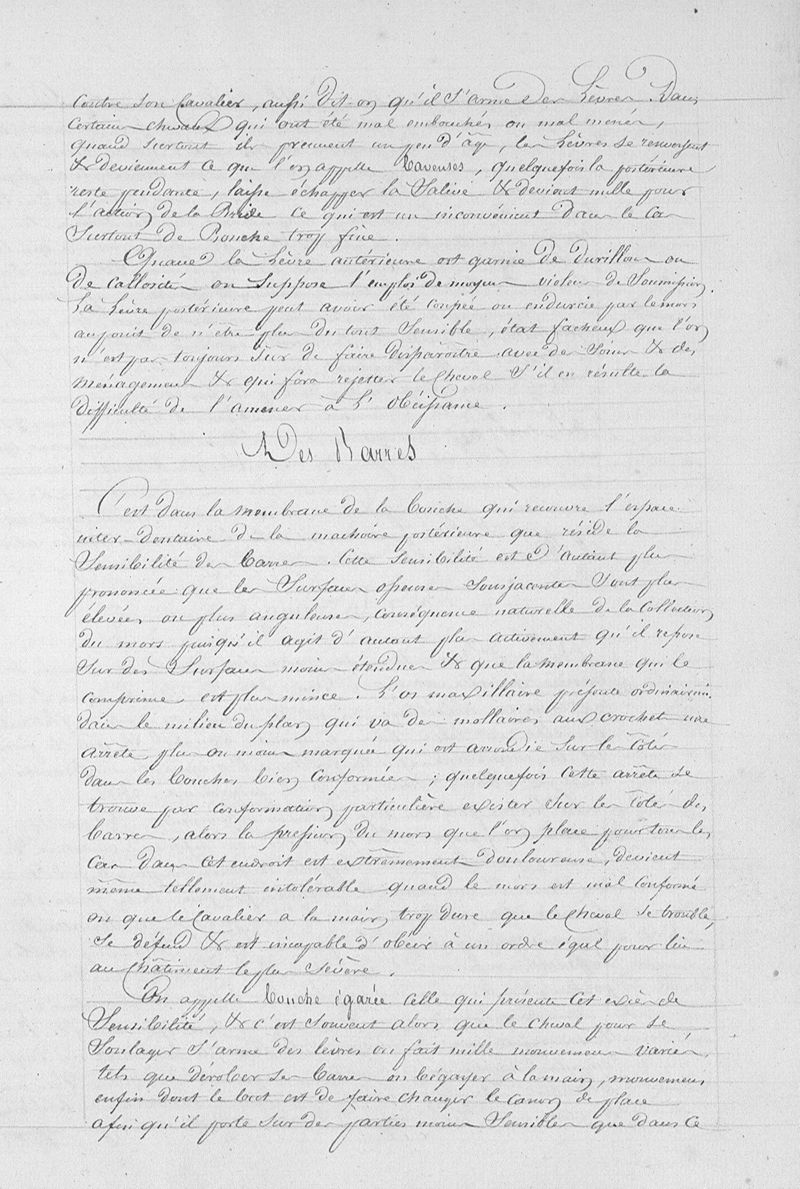 contre son Cavalier, aussi dit-on qu'il s'arme des Lèvres. Dans
certains chevaux qui ont été mal embouchés ou mal menés,
quand surtout ils prennent un peu d'âge, les Lèvres se renversent
& deviennent ce que l'on appelle baveuses, quelquefois la postérieure
reste pendante, laisse échapper la Salive & devient nulle pour
l'action de la Bride ce qui est un inconvénient dans le cas
Surtout de Bouche trop fine.
Quand la Lèvre antérieure est garnie de durillons ou
de callosités on suppose l'emploi de moyens violens de Soumission.
La Lèvre postérieure peut avoir été coupée ou endurcie par le mors
au point de n'être plus du tout Sensible, état facheux que l'on
n'est pas toujours sûr de faire disparaître avec des Soins & des
ménagemens & qui fera rejetter le Cheval S'il en résulte la
difficulté de l'amener à l'Obéissance.
Des Barres
C'est dans la membrane de la bouche qui recouvre l'espace
inter-dentaire de la machoire postérieure que réside la
Sensibilité des barres. Cette Sensibilité est d'autant plus
prononcée que les Surfaces osseuses Sousjacentes Sont plus
élevées ou plus anguleuses, conséquence naturelle de la collection
du mors puisqu'il agit d'autant plus activement qu'il repose
Sur des Surfaces moins étendues & que la membrane qui le
comprime est plus mince. L'os maxillaire présente ordinairem.
dans le milieu du plan qui va des mollaires aux crochets une
arrête plus ou moins marquée qui est arrondie Sur les côtés
dans les bouches bien conformées ; quelquefois cette arrête se
trouve par conformation particulière exister Sur les côtés des
barres, alors la pression du mors que l'on place pour tous les
cas dans cet endroit est extrêmement douloureuse, devient
même tellement intolérable quand le mors est mal conformé
ou que le Cavalier a la main trop dure que le Cheval se trouble,
se défend & est incapable d'obéir à un ordre égal pour lui
au Châtiment le plus sévère.
On appelle bouche égarée celle qui présente cet excès de
Sensibilité, & c'est Souvent alors que le cheval pour se
Soulager s'arme des lèvres ou fait mille mouvemens variés
tels que dérober Ses barres ou bégayer à la main, mouvemens
enfin dont le but est de faire changer le canon de place
afin qu'il porte Sur des parties moins Sensibles que dans ce